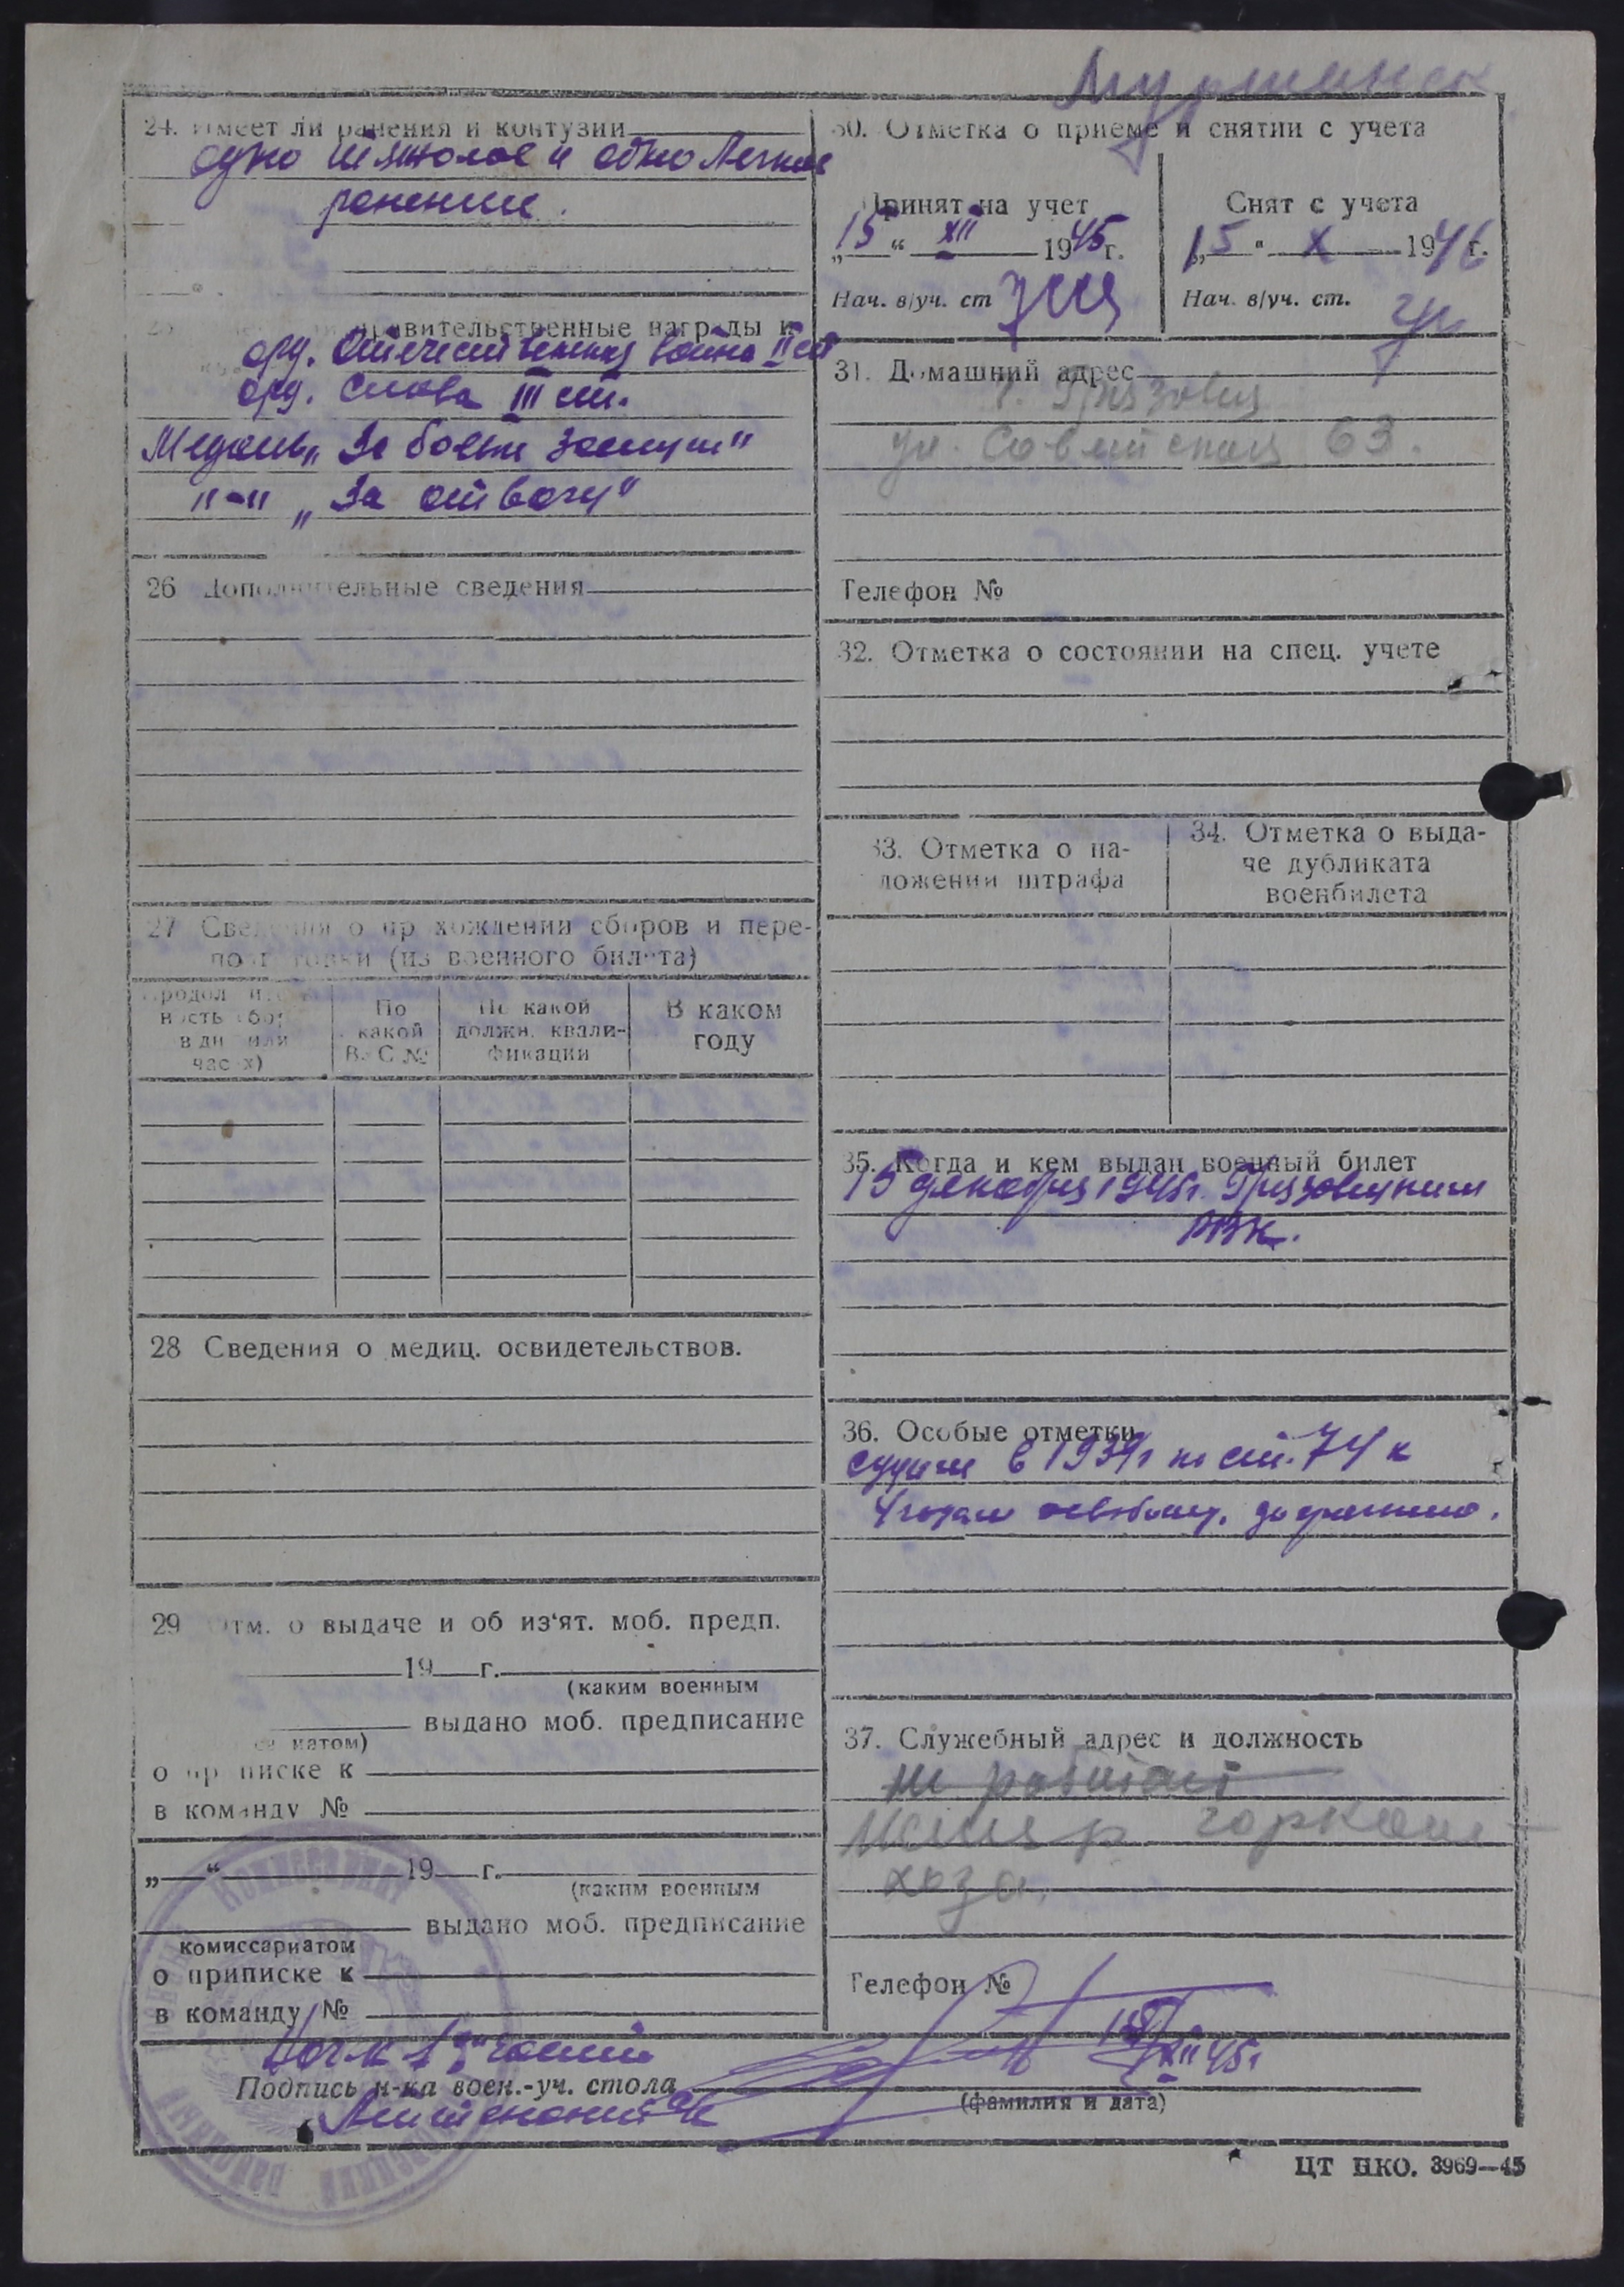 Мурманск
24. Имеет ли ранения и контузии
одно тяжолое и одно легкое
ранение.
правительственные награды и
орд. Отечественная война II ст
орд. Слава III ст.
Медаль „За боевые заслуги"
"-" „За отвагу"
26 Дополнительные сведения
27 Сведения о прохождении сборов и пере-
подготовки (из военного билета)
Продолжитель-
ность сбор
в дн или
часах)
По
какой
В. С №
По какой
должн. квали-
фикации
В каком
году
28 Сведения о медиц. освидетельствов.
29 Отм. о выдаче и об из'ят. моб. предп.
19 г.
(каким военным
выдано моб. предписание
матом)
о приписке к
в команду №
„ “ 19 г.
(каким военным
выдано моб. предписание
комиссариатом
о приписке к
в команду №
30. Отметка о приеме и снятии с учета
Принят на учет
„15“ XII 1945 г.
Нач. в/уч. ст
Снят с учета
„15" X 1946 г.
Нач. в/уч. ст.
31. Домашний адрес
г. Грязовец
ул. Советская 63.
Телефон №
32. Отметка о состоянии на спец. учете
33. Отметка о на-
ложении штрафа
34. Отметка о выда-
че дубликата
военбилета
35. Когда и кем выдан военный билет
15 декабря 1945г. Грязовецким
РВК.
36. Особые отметки
судим в 1939г по ст. 74 к
4 годам освобожд. досрочно.
37. Служебный адрес и должность
не работает
Мастер горком-
хоза.
Телефон №
Нач-к 1й части
Подпись н-ка воен.-уч. стола
(фамилия и дата)
15/XII 45г
Комиссариат
ЦТ НКО. 3969—45